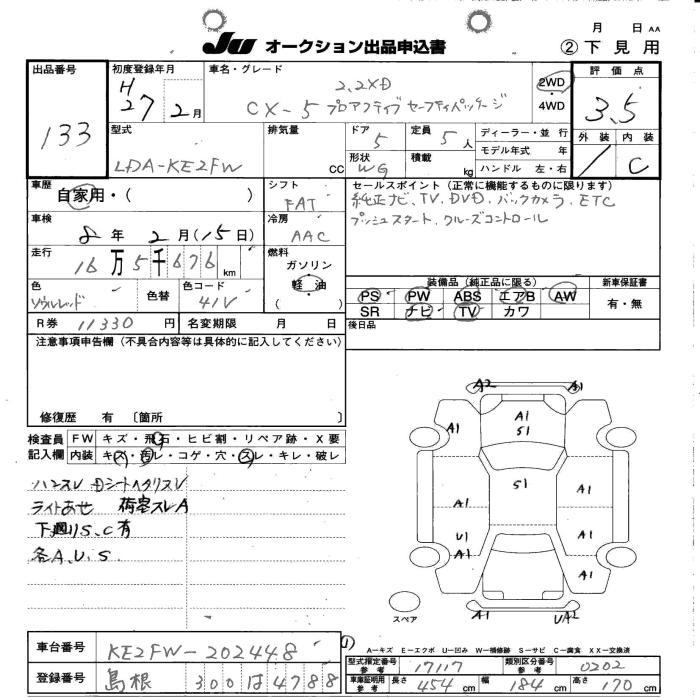 月 日 AA
JU オークション出品申込書
② 下見用
出品番号
133
初度登録年月
H27 2月
車名・グレード
2.2XD
CX-5 プロアクティブ セーフティパッケージ
2WD
4WD
評価点
3.5
外装 内装
/ C
型式
LDA-KE2FW
排気量
CC
ドア 5
形状 WG
定員 5人
積載 kg
ディーラー・並行
モデル年式 年
ハンドル 左・右
車歴
自家用・( )
シフト
FAT
セールスポイント (正常に機能するものに限ります)
純正ナビ、TV、DVD、バックカメラ、ETC
プッシュスタート、クルーズコントロール
車検
8年 2月 (15日)
冷房
AAC
走行
16万5千676km
燃料
ガソリン
軽・油
( )
色
ソウルレッド
色替
色コード
41V
装備品 (純正品に限る)
PS PW ABS エアB AW
SR ナビ TV カワ
新車保証書
有・無
R券 11330円
名変期限 月 日
後日品
注意事項申告欄 (不具合内容等は具体的に記入してください)
修復歴 有 〔箇所 〕
検査員記入欄
FW キズ・飛石・ヒビ割・リペア跡・X要
内装 キズ・汚レ・コゲ・穴・スレ・キレ・破レ
ハンスレ Dシートヘタリスレ
ライトあせ 荷室スレA
下廻りS、C有
各A、U、S、
A2 A1
A1 A1 A1
S1
S1
A1 A1
U1 A1
A1 A1
A1 UA2
スペア
A-キズ E-エクボ U-凹み W-補修跡 S-サビ C-腐食 XX-交換済
車台番号
KE2FW-202448
登録番号
島根 300 は 4788
型式指定番号 参考 17117
類別区分番号 参考 0202
車庫証明用 参考 長さ 454cm 幅 184cm 高さ 170cm